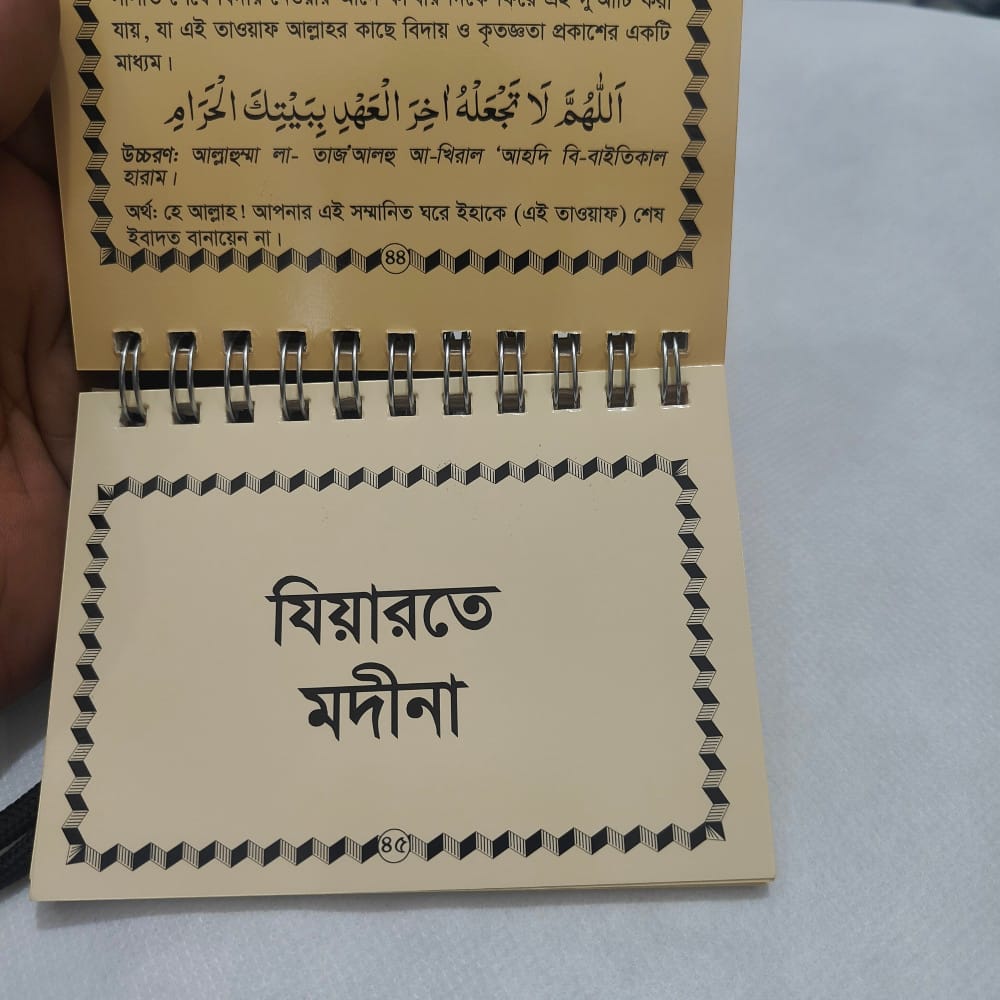 যায়, যা এই তাওয়াফ আল্লাহর কাছে বিদায় ও কৃতজ্ঞতা প্রকাশের একটি
মাধ্যম।
اَللّٰهُمَّ لَا تَجْعَلْهُ اٰخِرَ الْعَهْدِ بِبَيْتِكَ الْحَرَامِ
উচ্চরণ: আল্লাহুম্মা লা- তাজ'আলহু আ-খিরাল 'আহদি বি-বাইতিকাল
হারাম।
অর্থ: হে আল্লাহ! আপনার এই সম্মানিত ঘরে ইহাকে (এই তাওয়াফ) শেষ
ইবাদত বানায়েন না।
৪৪
যিয়ারতে
মদীনা
৪৫